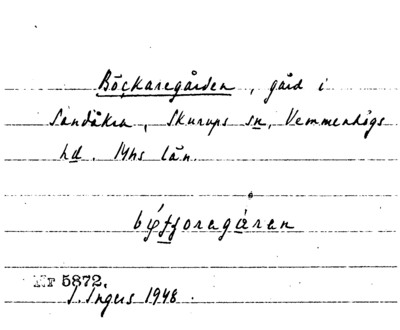 Böckaregården, gård i
Sandåkra, Skurups sn, Vemmenhögs
hd. Mhs län.
Nr 5872.
I. Ingers 1948.